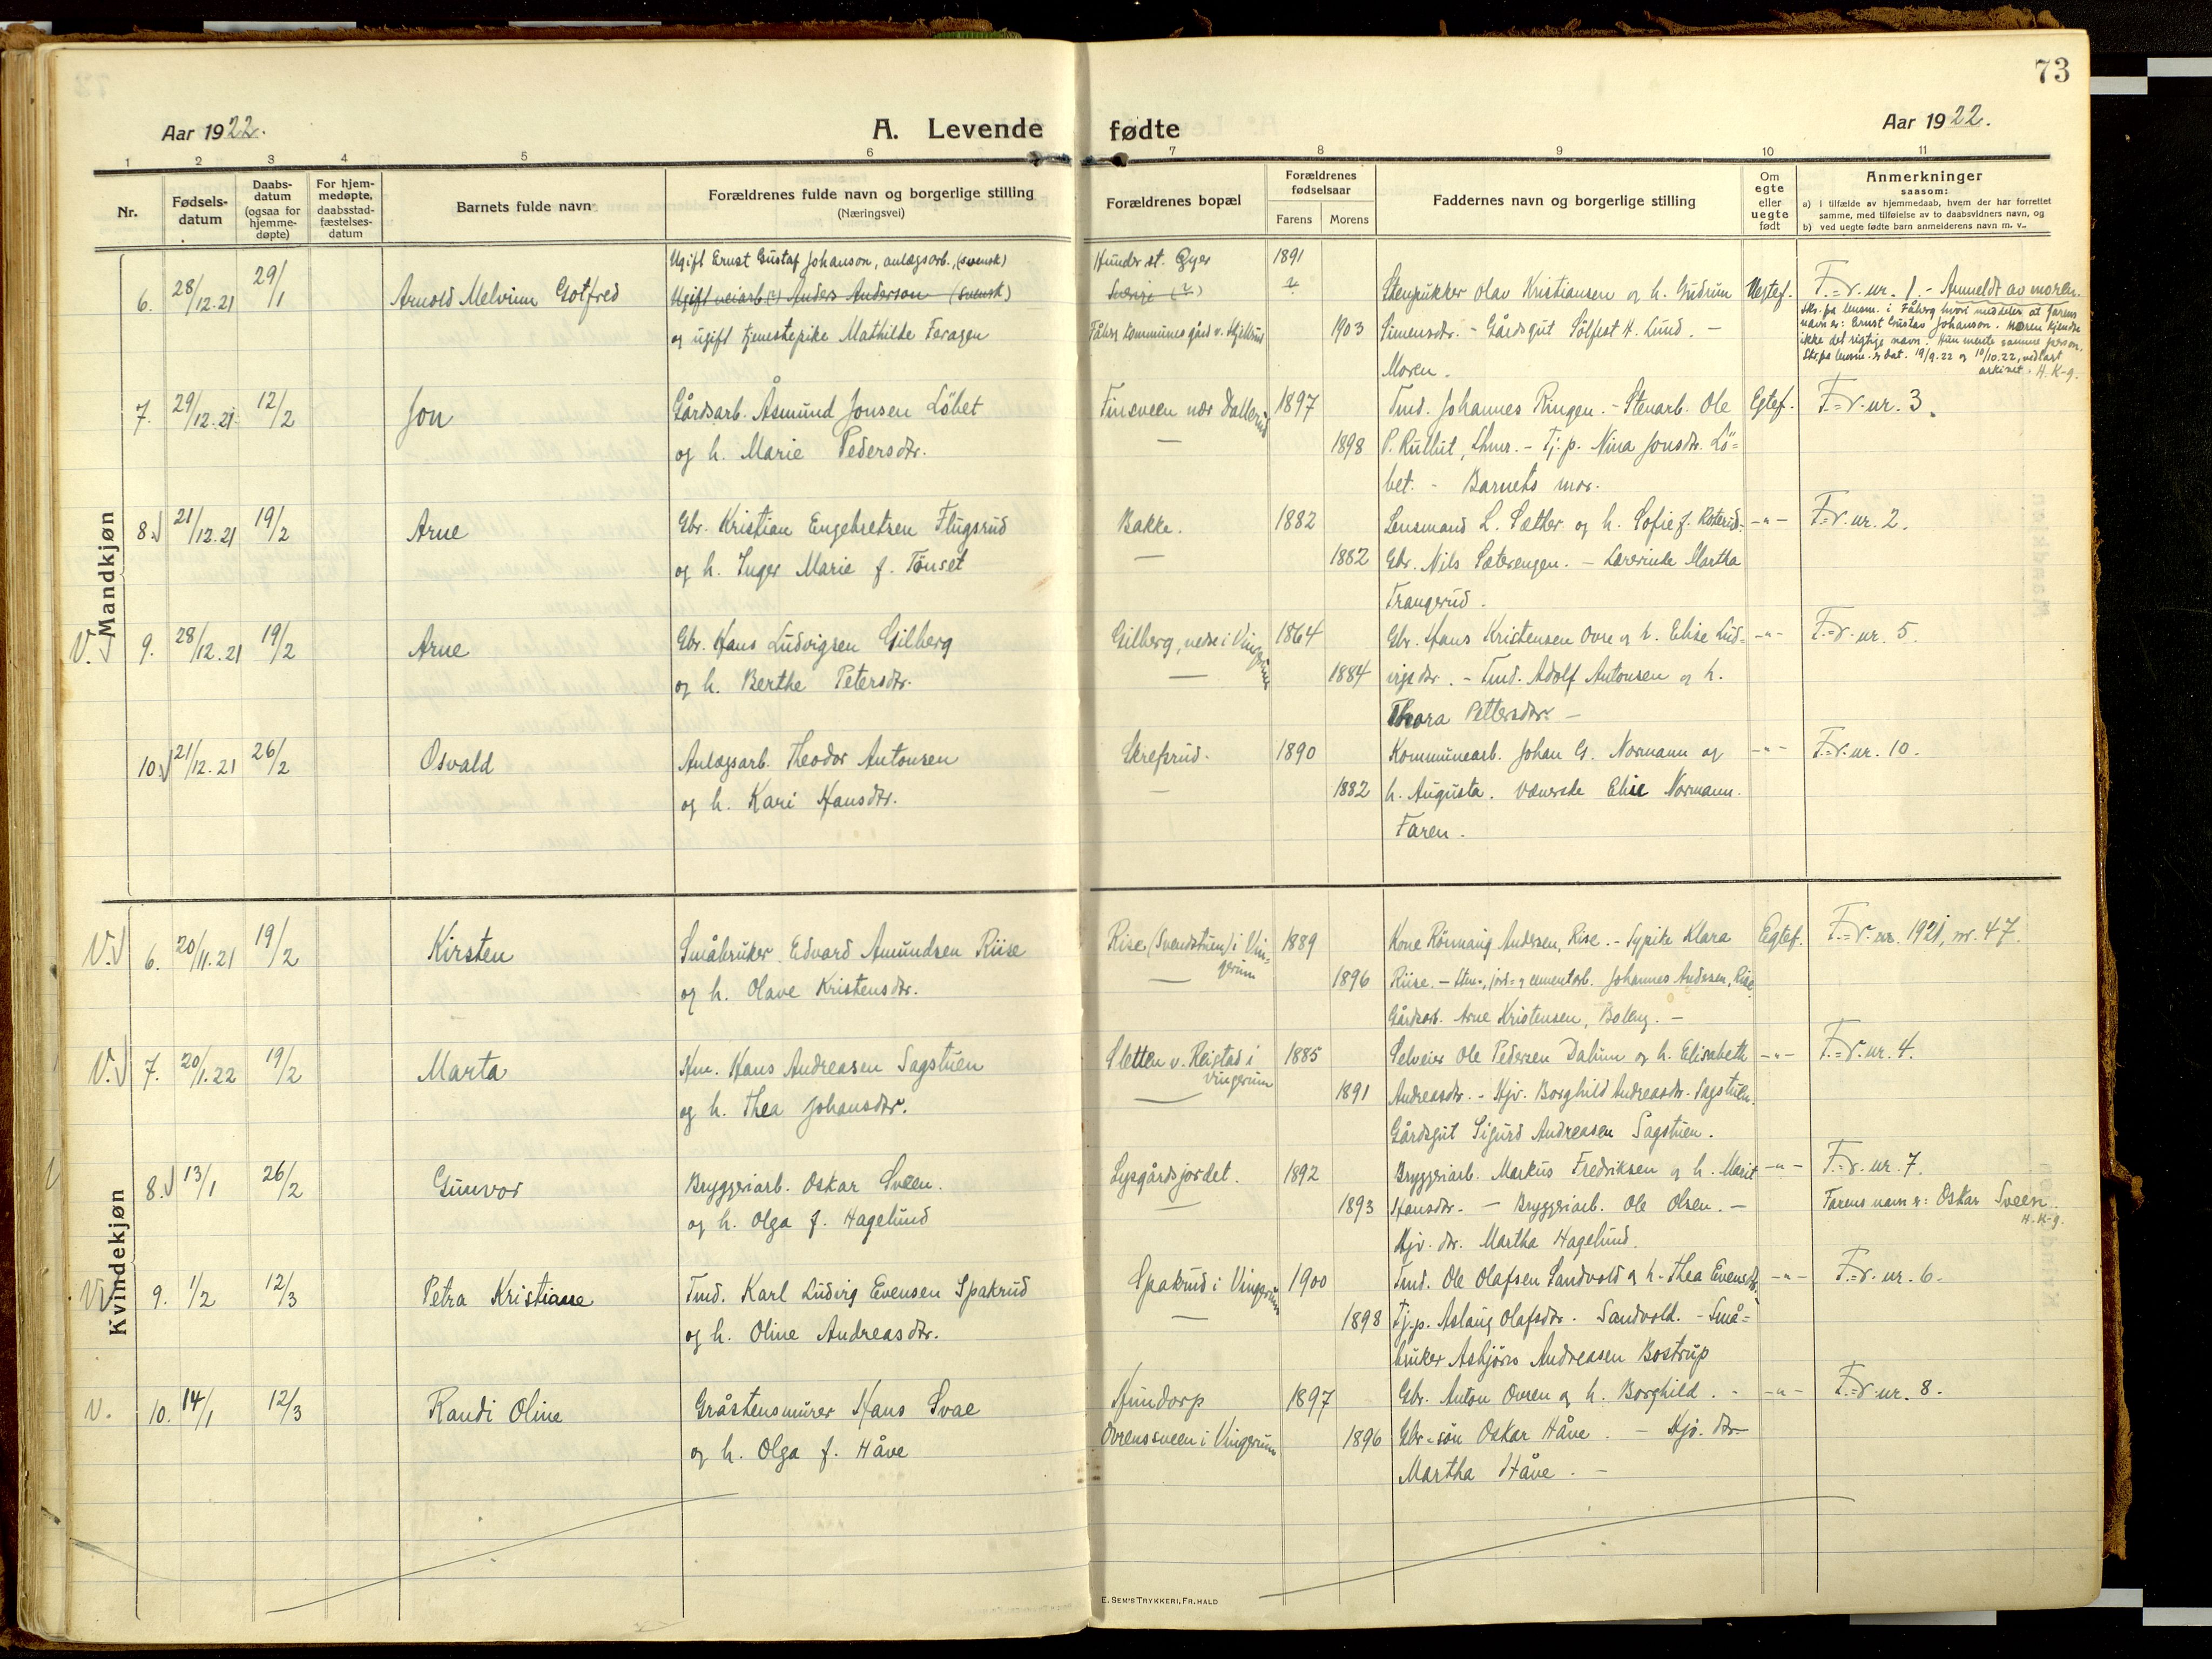 73
Aar 1922.
A. Levende fødte
Aar 1922.
1 2 3 4 5 6 7 8 9 10 11
Nr.
Fødsels-
datum
Daabs-
datum
(ogsaa for
hjemme-
døpte)
For hjem-
medøpte,
daabsstad-
fæstelses-
datum
Barnets fulde navn
Forældrenes fulde navn og borgerlige stilling
(Næringsvei)
Forældrenes bopæl
Forældrenes
fødselsaar
Farens Morens
Faddernes navn og borgerlige stilling
Om
egte
eller
uegte
født
Anmerkninger
saasom:
a) i tilfælde av hjemmedaab, hvem der har forrettet
samme, med tilføielse av to daabsvidners navn, og
b) ved uegte fødte barn anmelderens navn m. v.
Mandkjøn
Ugift Ernst Gustaf Johanson, anlægsarb., (svensk) Hunder st. Øyer 1891
6. 28/12.21 29/1 Arnold Melvinn Gotfred Ugift veiarb (?) Anders Anderson (svensk) Sverige (?) ? Stenpukker Olav Kristiansen og h. Gudrun Uegtef. F.=r. nr. 1. - Anmeldt av moren.
og ugift tjenestepike Mathilde Feragen Fåberg kommunes gård v. 1903 Simensdtr. - Gårdsgut Sölfest H. Lund. -
Moren.
Skr. fra lensm. i Fåberg hvori meddeles at farens
navn er: Ernst Gustav Johanson. Moren kjendte
ikke det rigtige navn. Hun mente samme person.
Skr. fra lensm. er dat. 19/9.22 og 10/10.22, vedlagt
arkivet. H. K-g.
7. 29/12.21 12/2 Jon Gårdsarb. Åsmund Jonsen Löbet Finsveen nær Dallerud 1897 Tmd. Johannes Ringen. - Stenarb. Ole Egtef. F.=r. nr. 3.
og h. Marie Pedersdtr. — 1898 P. Rulhit, Lhmr. - Tj. p. Nina Jonsdtr. Lö=
bet. - Barnets mor.
8. 21/12.21 19/2 Arne Gbr. Kristian Engebretsen Flugsrud Bakke. 1882 Lensmand L. Sæther og h. Sofie f. Koterud. -"- F.=r. nr. 2.
og h. Inger Marie f. Tönset — 1882 Gbr. Nils Sæterengen. - Lærerinde Martha
Trangerud.
V. 9. 28/12.21 19/2 Arne Gbr. Hans Ludvigsen Gilberg Gilberg, nedre i Vingrum 1864 Gbr. Hans Kristensen Ovre og h. Elise Lud= -"- F.=r. nr. 5.
og h. Berthe Petersdtr. — 1884 vigsdtr. - Tmd. Adolf Antonsen og h.
Thora Pettersdtr. -
10. 21/12.21 26/2 Osvald Anlægsarb. Theodor Antonsen Skrefsrud. 1890 Kommunearb. Johan G. Normann og -"- F.=r. nr. 10.
og h. Kari Hansdtr. — 1882 h. Augusta. Væverske Elise Normann.
Faren.
Kvindekjøn
V. 6. 20/11.21 19/2 Kirsten Småbruker Edvard Amundsen Riise Rise (Svendstuen) i Vin=
gerum 1889 Kone Rönnaug Andersen, Rise. - Sypike Klara Egtef. F.=r. nr. 1921, nr. 47.
og h. Olave Kristensdtr. — 1896 Riise. - Sten-, jord- og cementarb. Johannes Andersen, Rise.
Gårdsarb. Arne Kristensen, Boleng. -
V. 7. 20/1.22 19/2 Marta Hm. Hans Andreasen Sagstuen Sletten v. Reistad i
Vingerum 1885 Selveier Ole Pedersen Dahum og h. Elisabeth -"- F.=r. nr. 4.
og h. Thea Johansdtr. — 1891 Andreasdtr. - Hjv. Borghild Andreasdtr. Sagstuen.
Gårdsgut Sigurd Andreasen Sagstuen.
8. 13/1 26/2 Gunvor Bryggeriarb. Oskar Sveen. Lysgårdsjordet. 1892 Bryggeriarb. Markus Fredriksen og h. Marit -"- F.=r. nr. 7.
og h. Olga f. Hagelund — 1893 Hansdtr. - Bryggeriarb. Ole Olsen. - Farens navn er: Oskar Sveen.
H. K-g.
Hjv. dtr. Martha Hagelund.
V. 9. 1/2 12/3 Petra Kristianne Tmd. Karl Ludvig Evensen Spakrud Spakrud i Vingrum 1900 Tmd. Ole Olafsen Sandvold og h. Thea Evensdtr. -"- F.=r. nr. 6.
og h. Oline Andreasdtr. — 1898 Tj.p. Aslaug Olafsdtr. Sandvold. - Små=
bruker Asbjörn Andreasen Bostrup
V. 10. 14/1 12/3 Randi Oline Gråstensmurer Hans Svae Hundorp 1897 Gbr. Anton Ovren og h. Borghild. - -"- F.=r. nr. 8.
og h. Olga f. Håve Ovrenssveen i Vingrum 1896 Gbr.-sön Oskar Håve. - Hjv. dtr.
Martha Håve. -
E. SEM'S TRYKKERI, FR.HALD